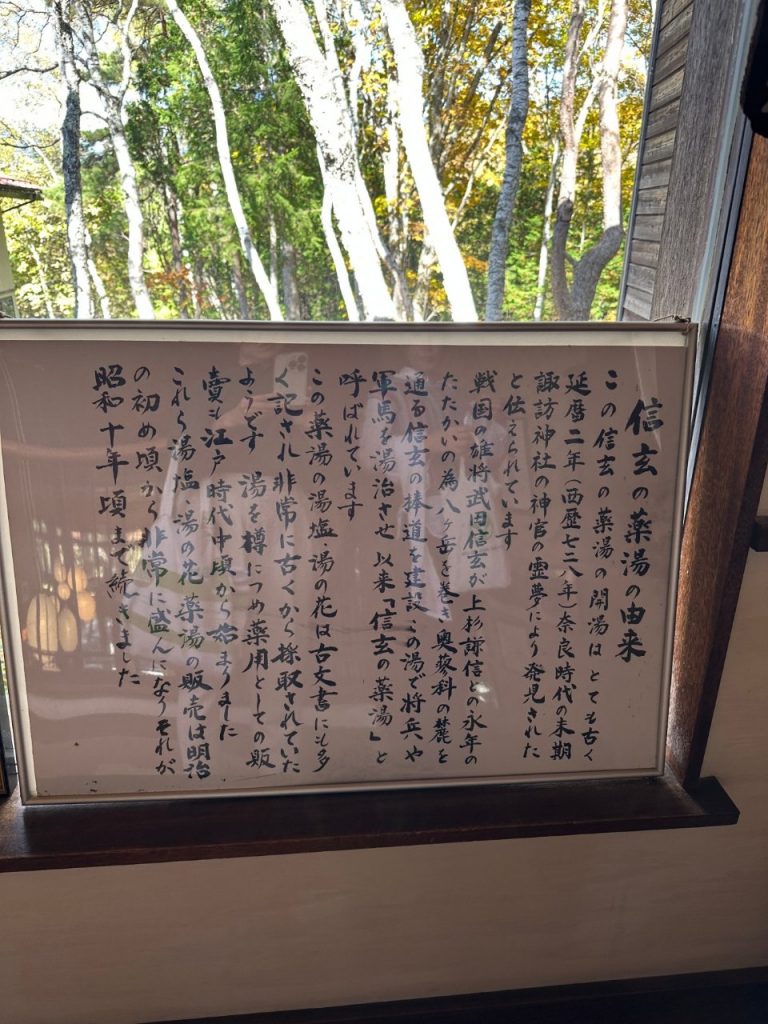 信玄の薬湯の由来
この信玄の薬湯の開湯はとても古く
延暦二年(西歴七二八年)奈良時代の末期
諏訪神社の神官の霊夢により発見された
と伝えられています
戦国の雄将武田信玄が上杉謙信との永年の
たたかいの為八ヶ岳を巻き奥蓼科の麓を
通る信玄の棒道を建設この湯で将兵や
軍馬を湯治させ以来「信玄の薬湯」と
呼ばれています
この薬湯の湯塩湯の花は古文書にも多
く記され非常に古くから採取されていた
ようです 湯を樽につめ薬用としての販
賣も江戸時代中頃から始まりました
これら湯塩、湯の花薬湯の販売は明治
の初め頃から非常に盛んになりそれが
昭和十年頃まで続きました